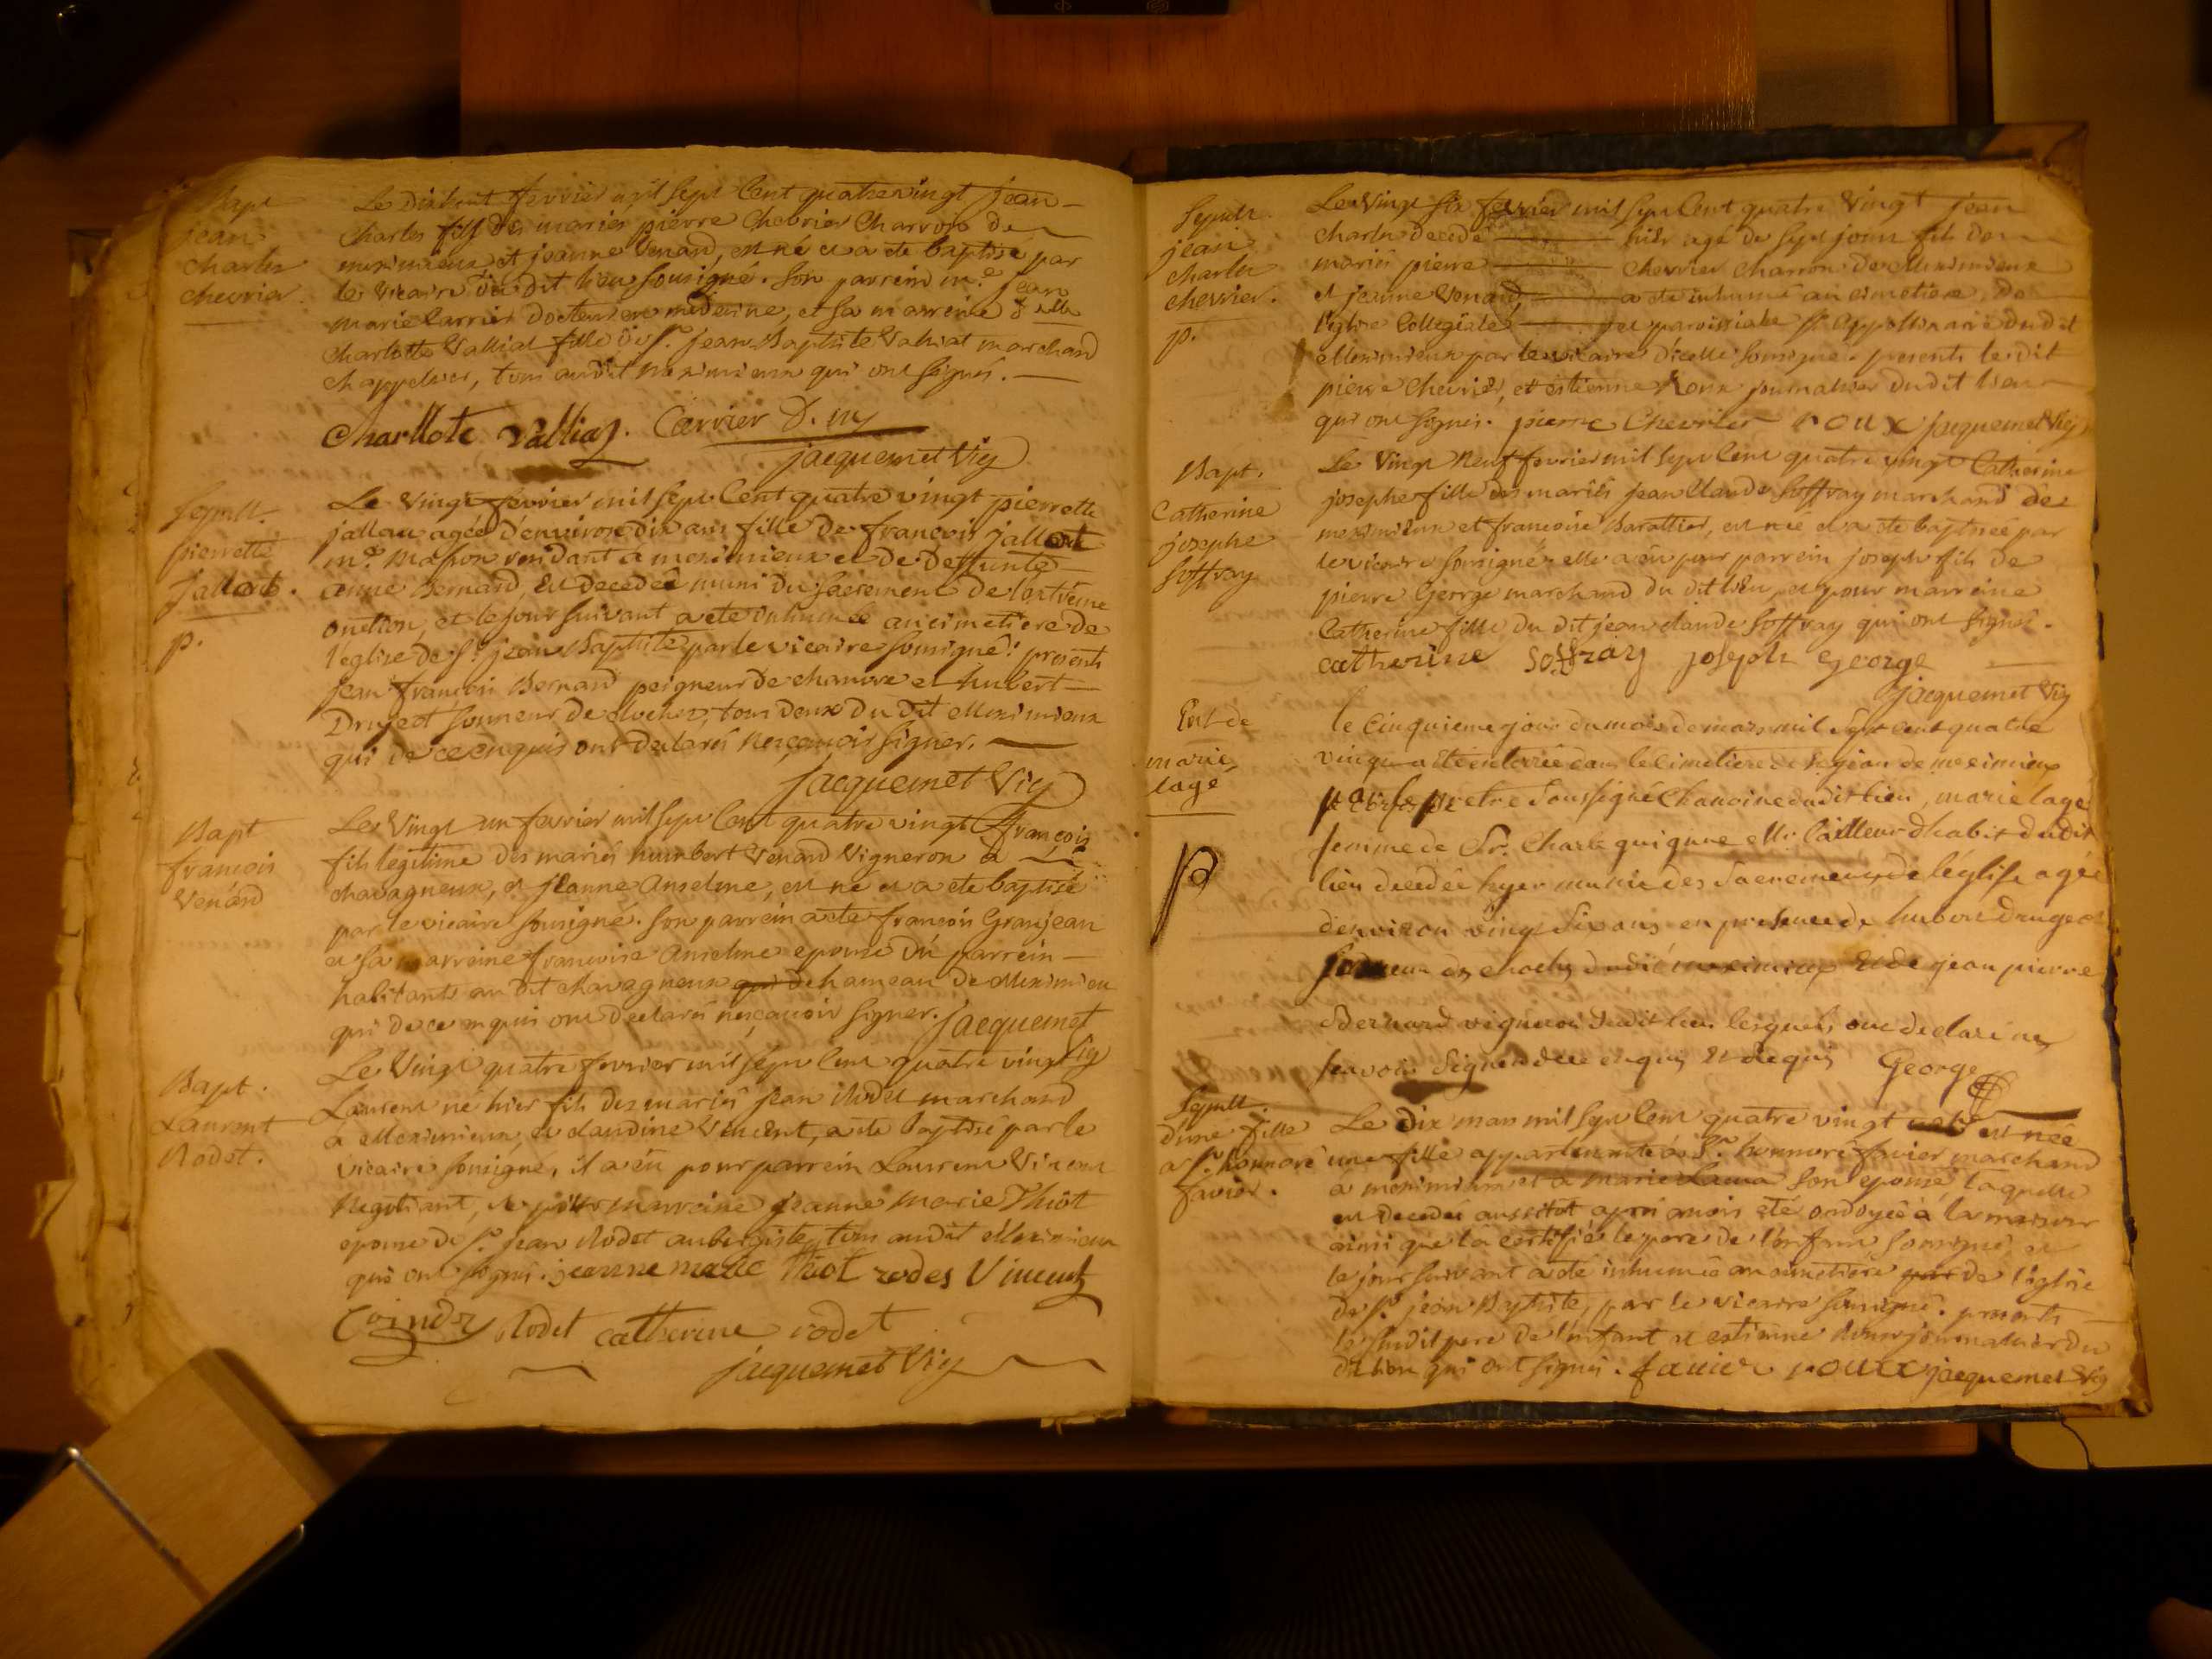 Bapt
jean
charles
chevrier.
Le Dixhuit fevrier mil sept Cent quatrevingt jean
Charles fils des mariés pierre Chevrier Charron de
meximieux et jeanne Venard, est né et a ete baptisé par
le vicaire du dit lieu sousigné. son parrein me. jean
marie Carrier Docteur en medecine, et sa marreine dlle
Charlotte Valliat fille du sr. jean Baptiste Valliat marchand
chappelier, tous audit meximieux qui ont signés.
Charllote Valliaz. Carrier D. m
jacquemet Vic
Sepult.
pierrette
Jallat.
p.
Le Vingt fevrier mil sept Cent quatre vingt pierrette
jallat agée d'environ dix ans fille de françois jallat
me. masson residant a meximieux et de deffunte
anne Bernard, est decedée muni du sacrement de l'extreme
onction, et le jour suivant a ete inhumée au cimetiere de
l'eglise de st. jean Baptiste par le vicaire sousigné. presents
jean françois Bernard peigneur de chanvre et hubert
Drujeot sonneur de cloches, tous deux du dit Meximieux
qui de ce enquis ont declarés nesçavoir signer.
jacquemet Vic
Bapt
francois
Venard
Le Vingt un fevrier mil sept Cent quatre vingt françois
fils legitime des mariés humbert Venard Vigneron a
chavagneux, et jeanne Anselme, est né et a ete baptisé
par le vicaire sousigné. son parrein a ete françois Granjean
et sa marreine francoise Anselme epouse du parrein
habitants au dit chavagneux qui de hameau de Meximieu
qui de ce enquis ont declarés nesçavoir signer. jacquemet
Vic
Bapt.
Laurent
Rodet.
Le Vingt quatre fevrier mil sept Cent quatre vingt
Laurent né hier fils des mariés jean Rodet marchand
à Meximieux et claudine Vincent, a ete baptisé par le
vicaire sousigné, il a eu pour parrein Laurent Vincent
Negotiant, et pour marreine jeanne marie Thiot
epouse de sr. jean Rodet aubergiste, tous audit Meximieux
qui ont signés. jeanne marie thiot rodes Vincent
Coindry Rodet catherine rodet
jacquemet Vic
Sepult.
jean
charles
chevrier.
p.
Le Vingt six fevrier mil sept Cent quatre Vingt jean
charles decedé hier agé de sept jours fils des
mariés pierre chevrier charron de Meximieux
et jeanne Venard, a ete inhumé au cimetiere de
l'eglise Collegiale et paroissiale st. appollinaire du dit
Meximieux par le vicaire d'icelle sousigné. presents ledit
pierre chevrier, et estienne Roux journalier du dit lieu
qui ont signés. pierre Chevrier roux jacquemet Vic
Bapt.
Catherine
josephe
Soffray
Le Vingt Neuf fevrier mil sept Cent quatre vingt Catherine
josephe fille des mariés jean Claude Soffray marchand de
meximieux et francoise Barattier, est née et a ete baptisée par
le vicaire sousigné. elle a eu pour parrein joseph fils de
pierre George marchand du dit lieu, et pour marreine
Catherine fille du dit jean claude Soffray qui ont signés.
catherine soffray joseph George
jacquemet Vic
Ent de
marie
lagé
p
le cinquieme jour du mois de mars mil sept cent quatre
vingt a eté enterrée dans le cimetiere de st jean de meximieux
par le pretre soussigné Chanoine dudit lieu, marie lage
femme de Sr. Charle tailleur d'habit dudit
lieu decedée hyer munie des sacremens de l'église agée
d'environ vingt six ans en presence de hubert drugeo
sonneur de cloches dudit meximieux et de jean pierre
Bernard vigneron dudit lieu lesquels ont declaré ne
scavoir signer de ce enquis et requis George
Sepult.
d'une fille
a sr. honnoré
favier.
Le Dix mars mil sept Cent quatre vingt est née
une fille appartenante a Sr. honnoré favier marchand
a meximieux et a marie son epouse laquelle
est decedée aussitot apres avoir eté ondoyée à la maison
ainsi que l'a certifié le pere de l'enfant sousigné et
le jour suivant a eté inhumée au cimetiere par de l'eglise
de st. jean Baptiste, par le vicaire sousigné. presents
le susdit pere de l'enfant et estienne Roux journalier du
dit lieu qui ont signés. favier roux jacquemet Vic